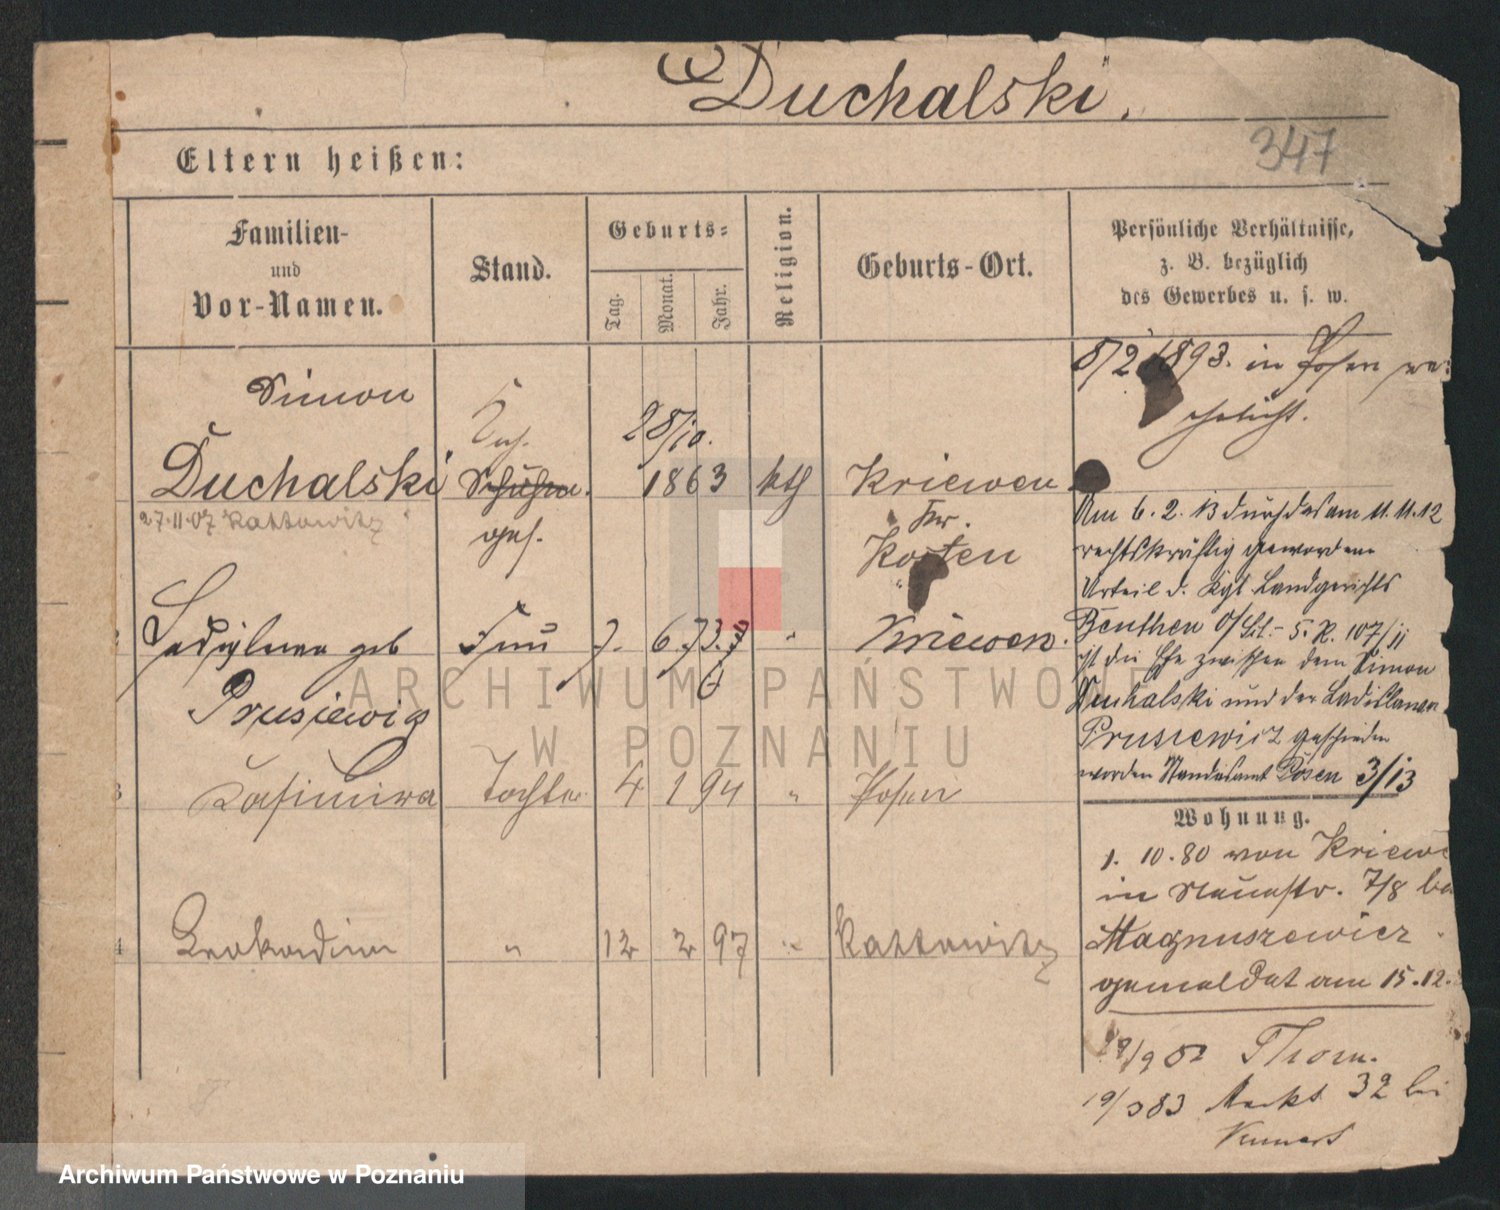 Duchalski.
347
Eltern heißen:
Familien-
und
Vor-Namen.
Stand.
Geburts-
Tag.
Monat.
Jahr.
Religion.
Geburts-Ort.
Persönliche Verhältnisse,
z. B. bezüglich
des Gewerbes u. s. w.
8/2 1893. in Posen ver-
ehelicht.
Simon
28/10.
Duchalski 1863 kth Kriewen
27.11.07 Kattowitz
ges. Kr.
Kosten
Am 6. 2. 13 durch das am 11.11.12
rechtskräftig gewordene
Urteil d. Kgl. Landgerichts
Beuthen O/ 5. R. 107/11
ist die Ehe zwischen dem Simon
Duchalski und der Ladislawa
Prusiewicz geschieden
worden Standesamt Posen 3/13
Ladislawa geb Frau 7. 6. 73. " Kriewen.
Prusiewicz
3 Casimira Tochter 4 1 94 " Posen
Wohnung.
1. 10. 80 von Kriewe
in Neuestr. 7/8 bei
Magnuszewicz
gemeldet am 15.12.
4 Leokadia " 12 2 97 " Kattowitz
Thorn.
19/3 83 Markt 32 bei
ARCHIWUM PAŃSTWOWE
W POZNANIU
Archiwum Państwowe w Poznaniu